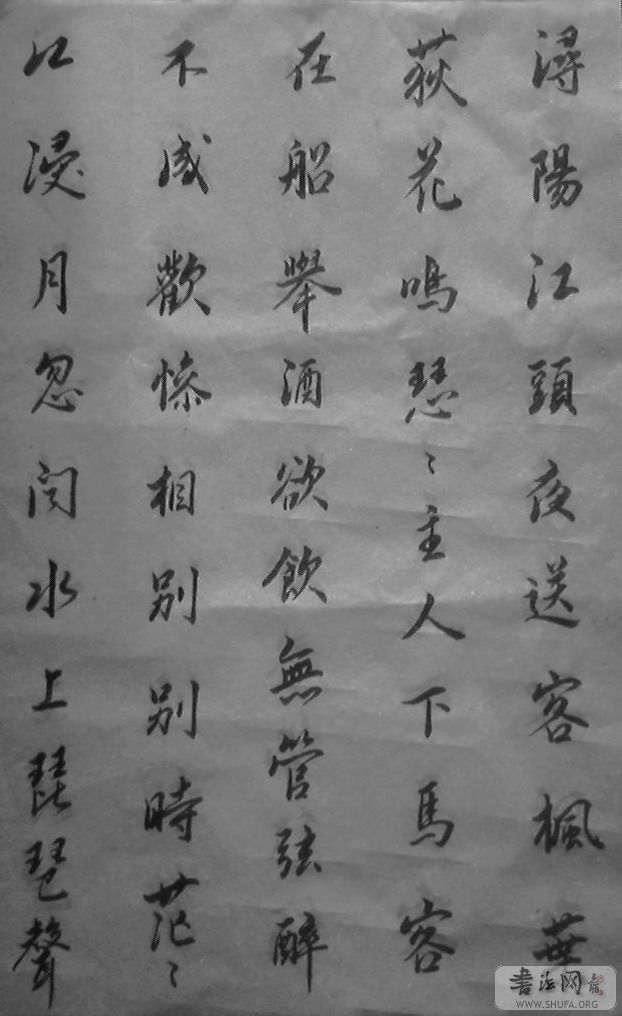 潯陽江頭夜送客楓葉
荻花鳴瑟〻主人下馬客
在船舉酒欲飲無管弦醉
不成歡慘相別別時茫〻
江浸月忽闻水上琵琶聲
書法网
WWW.SHUFA.ORG